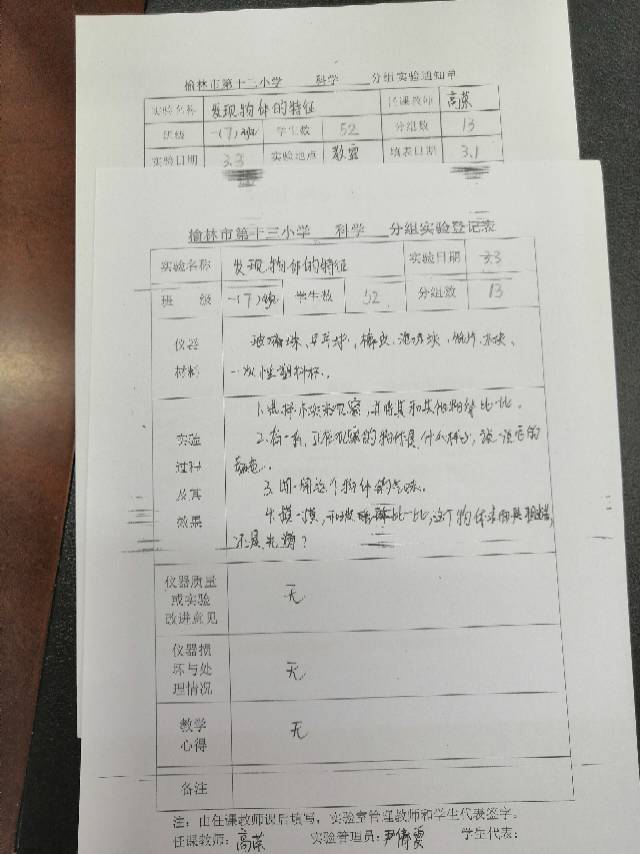 榆林市第十三小学 科学 分组实验通知单
实验名称 发现物体的特征 任课教师 高蓉
班级 一(7)班 学生数 52 分组数 13
实验日期 3.3 实验地点 教室 填表日期 3.1
榆林市第十三小学 科学 分组实验登记表
实验名称 发现物体的特征 实验日期 3.3
班 级 一(7)班 学生数 52 分组数 13
仪器 玻璃珠、乒乓球、橡皮、泡沫块、纸片、木块、
材料 一次性塑料杯。
1.选择木块来观察,并将其和其他物体比一比。
实验 2.看一看,正在观察的物体是什么样子,说说它的
过程
及其 3.闻一闻这个物体的气味。
效果 4.摸一摸,和玻璃珠比一比,这个物体表面是粗糙,
还是光滑?
仪器质量
或实验 无
改进意见
仪器损
坏与处 无
理情况
教学 无
心得
备注
注:由任课教师课后填写,实验室管理教师和学生代表签字。
任课教师:高蓉 实验管理员:尹 学生代表: